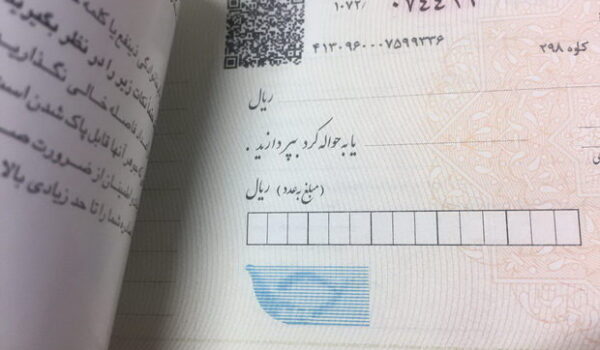 ۱۰۷۲/
کاوه ۲۹۸ ۴۱۳۰۹۶۰۰۰۷۵۹۹۳۳۶
ریال
یا به حواله کرد بپردازید .
(مبلغ به عدد) ریال
ذینفع یا کلمه
نکات زیر را در نظر بگیرید
فاصله خالی نگذارید
آنها قابل پاک شدن است
اطمینان از ضرورت
شما را تا حد زیادی بالا